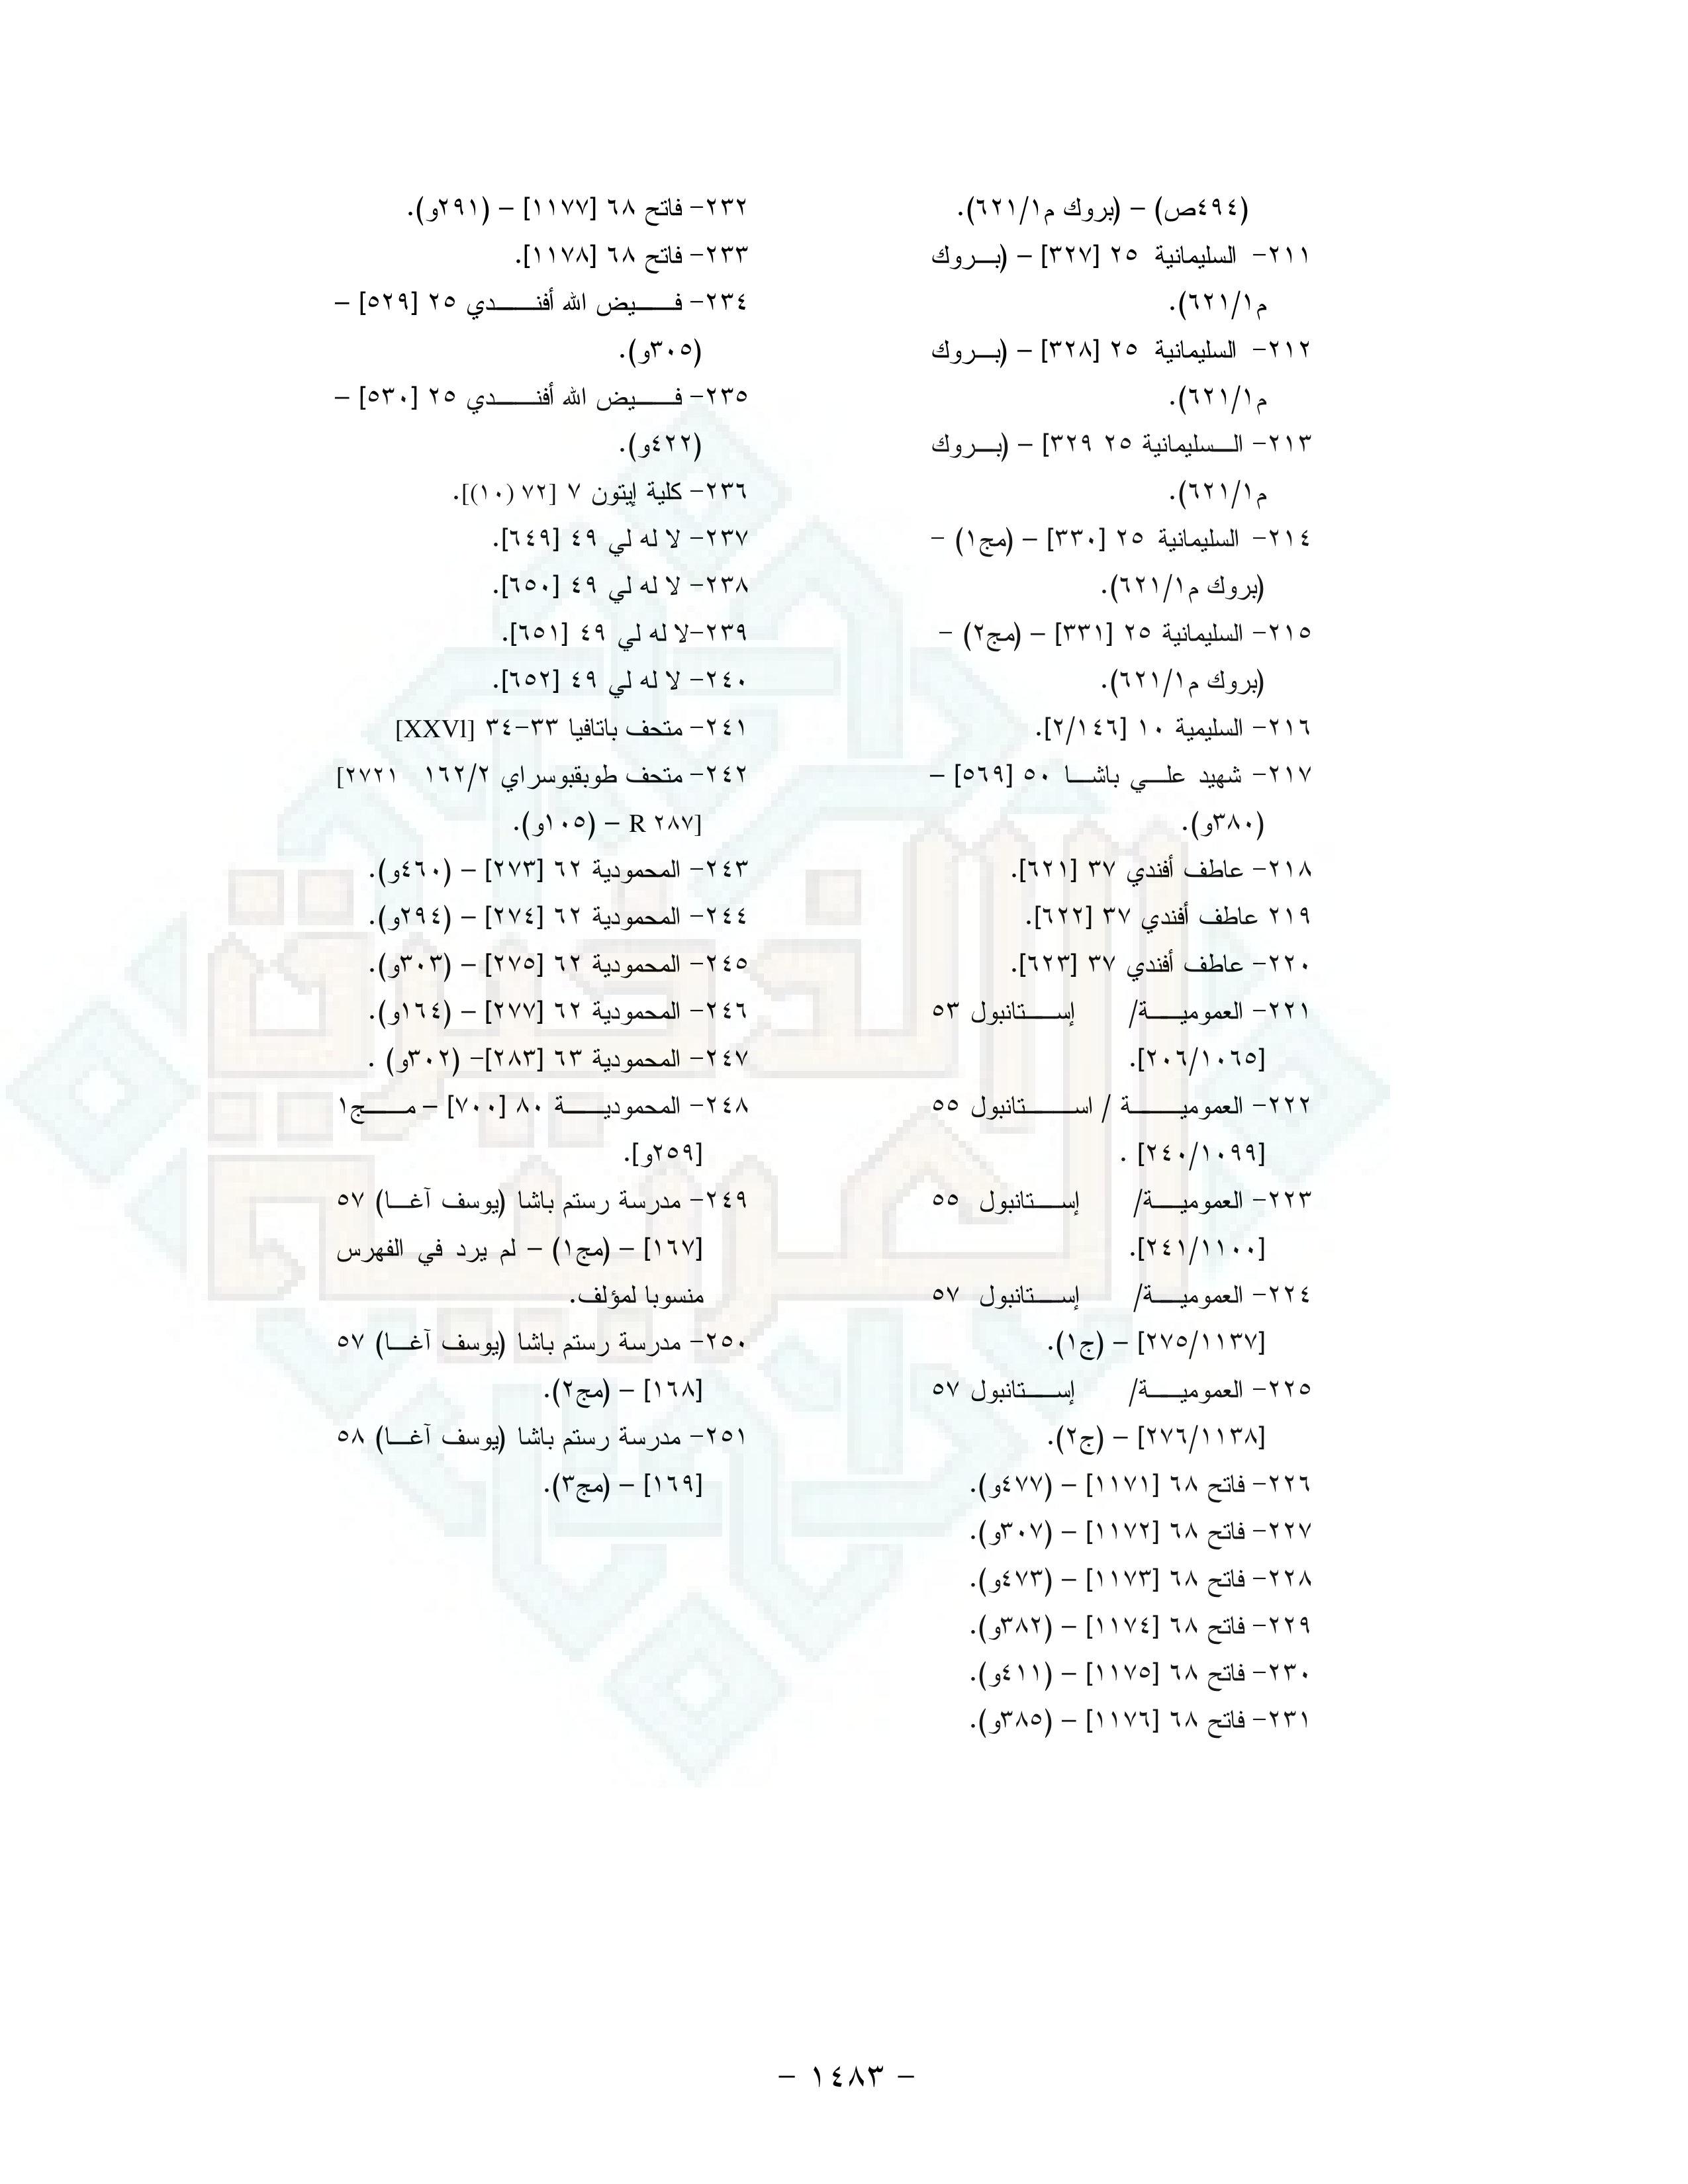 (٤٩٤ص) – (بروك م٦٢١/١).
٢١١- السليمانية ٢٥ [٣٢٧] – (بروك
م٦٢١/١).
٢١٢- السليمانية ٢٥ [٣٢٨] – (بروك
م٦٢١/١).
٢١٣- السليمانية ٢٥ ٣٢٩] – (بروك
م٦٢١/١).
٢١٤- السليمانية ٢٥ [٣٣٠] – (مج١) -
(بروك م٦٢١/١).
٢١٥- السليمانية ٢٥ [٣٣١] – (مج٢) -
(بروك م٦٢١/١).
٢١٦- السليمية ١٠ [٢/١٤٦].
٢١٧- شهيد علي باشا ٥٠ [٥٦٩] –
(٣٨٠و).
٢١٨- عاطف أفندي ٣٧ [٦٢١].
٢١٩ عاطف أفندي ٣٧ [٦٢٢].
٢٢٠- عاطف أفندي ٣٧ [٦٢٣].
٢٢١- العمومية/ إستانبول ٥٣
[٢٠٦/١٠٦٥].
٢٢٢- العمومية / استانبول ٥٥
[٢٤٠/١٠٩٩] .
٢٢٣- العمومية/ إستانبول ٥٥
[٢٤١/١١٠٠].
٢٢٤- العمومية/ إستانبول ٥٧
[٢٧٥/١١٣٧] – (ج١).
٢٢٥- العمومية/ إستانبول ٥٧
[٢٧٦/١١٣٨] – (ج٢).
٢٢٦- فاتح ٦٨ [١١٧١] – (٤٧٧و).
٢٢٧- فاتح ٦٨ [١١٧٢] – (٣٠٧و).
٢٢٨- فاتح ٦٨ [١١٧٣] – (٤٧٣و).
٢٢٩- فاتح ٦٨ [١١٧٤] – (٣٨٢و).
٢٣٠- فاتح ٦٨ [١١٧٥] – (٤١١و).
٢٣١- فاتح ٦٨ [١١٧٦] – (٣٨٥و).
٢٣٢- فاتح ٦٨ [١١٧٧] – (٢٩١و).
٢٣٣- فاتح ٦٨ [١١٧٨].
٢٣٤- فيض الله أفندي ٢٥ [٥٢٩] –
(٣٠٥و).
٢٣٥- فيض الله أفندي ٢٥ [٥٣٠] –
(٤٢٢و).
٢٣٦- كلية إيتون ٧ [٧٢ (١٠)].
٢٣٧- لا له لي ٤٩ [٦٤٩].
٢٣٨- لا له لي ٤٩ [٦٥٠].
٢٣٩-لا له لي ٤٩ [٦٥١].
٢٤٠- لا له لي ٤٩ [٦٥٢].
٢٤١- متحف باتافيا ٣٣-٣٤ [XXVl]
٢٤٢- متحف طوبقبوسراي ١٦٢/٢ ٢٧٢١]
[R ٢٨٧ – (١٠٥و).
٢٤٣- المحمودية ٦٢ [٢٧٣] – (٤٦٠و).
٢٤٤- المحمودية ٦٢ [٢٧٤] – (٢٩٤و).
٢٤٥- المحمودية ٦٢ [٢٧٥] – (٣٠٣و).
٢٤٦- المحمودية ٦٢ [٢٧٧] – (١٦٤و).
٢٤٧- المحمودية ٦٣ [٢٨٣]- (٣٠٢و) .
٢٤٨- المحمودية ٨٠ [٧٠٠] – مج١
[٢٥٩و].
٢٤٩- مدرسة رستم باشا (يوسف آغا) ٥٧
[١٦٧] – (مج١) – لم يرد في الفهرس
منسوبا لمؤلف.
٢٥٠- مدرسة رستم باشا (يوسف آغا) ٥٧
[١٦٨] – (مج٢).
٢٥١- مدرسة رستم باشا (يوسف آغا) ٥٨
[١٦٩] – (مج٣).
الذخيرة
العربية
- ١٤٨٣ -